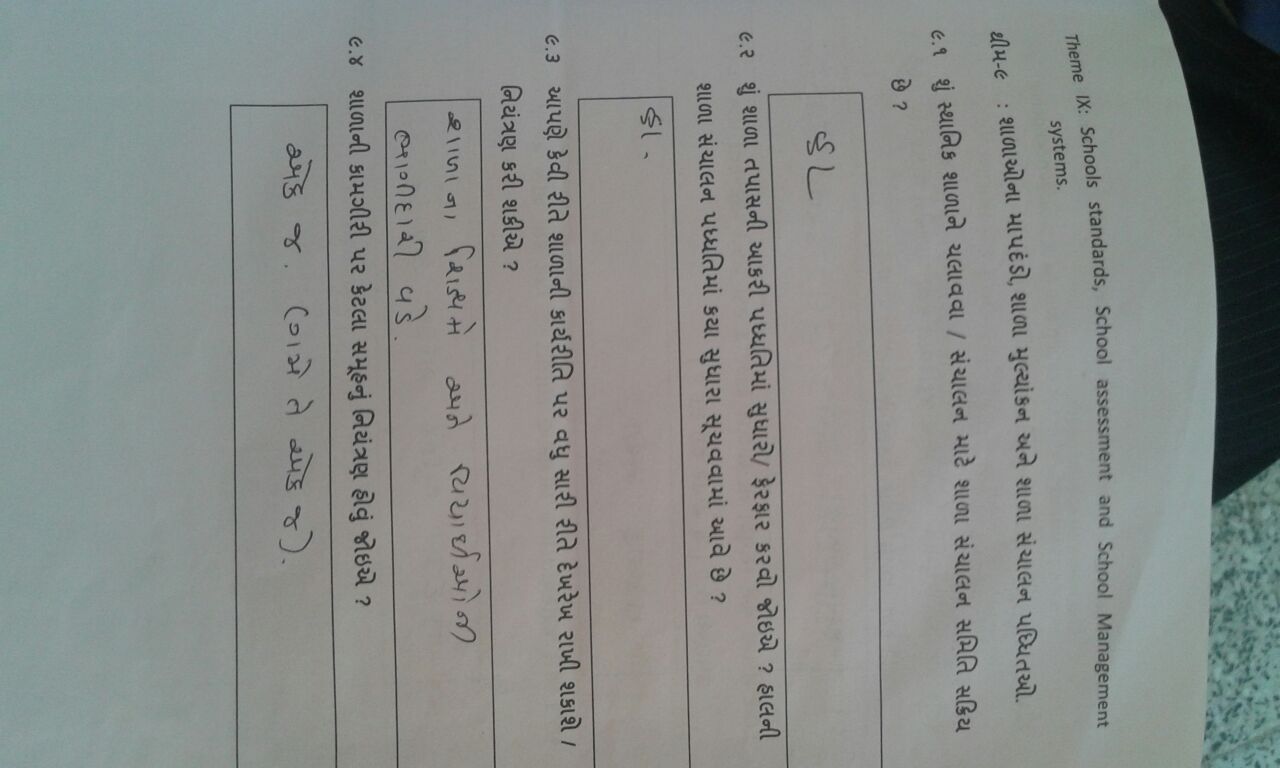 Theme IX: Schools standards, School assessment and School Management
systems.
થીમ-૯ : શાળાઓના માપદંડો, શાળા મુલ્યાંકન અને શાળા સંચાલન પધ્ધિતઓ.
૯.૧ શું સ્થાનિક શાળાને ચલાવવા / સંચાલન માટે શાળા સંચાલન સમિતિ સક્રિય
છે ?
હા
૯.૨ શું શાળા તપાસની આકરી પધ્ધતિમાં સુધારો/ ફેરફાર કરવો જોઇએ ? હાલની
શાળા સંચાલન પધ્ધતિમાં કયા સુધારા સૂચવવામાં આવે છે ?
હા.
૯.૩ આપણે કેવી રીતે શાળાની કાર્યરીતિ પર વધુ સારી રીતે દેખરેખ રાખી શકાશે /
નિયંત્રણ કરી શકીએ ?
શાળાના શિક્ષકો અને વિદ્યાર્થીઓની
ભાગીદારી વડે.
૯.૪ શાળાની કામગીરી પર કેટલા સમૂહનું નિયંત્રણ હોવું જોઇએ ?
એક જ. (ગમે તે એક જ).